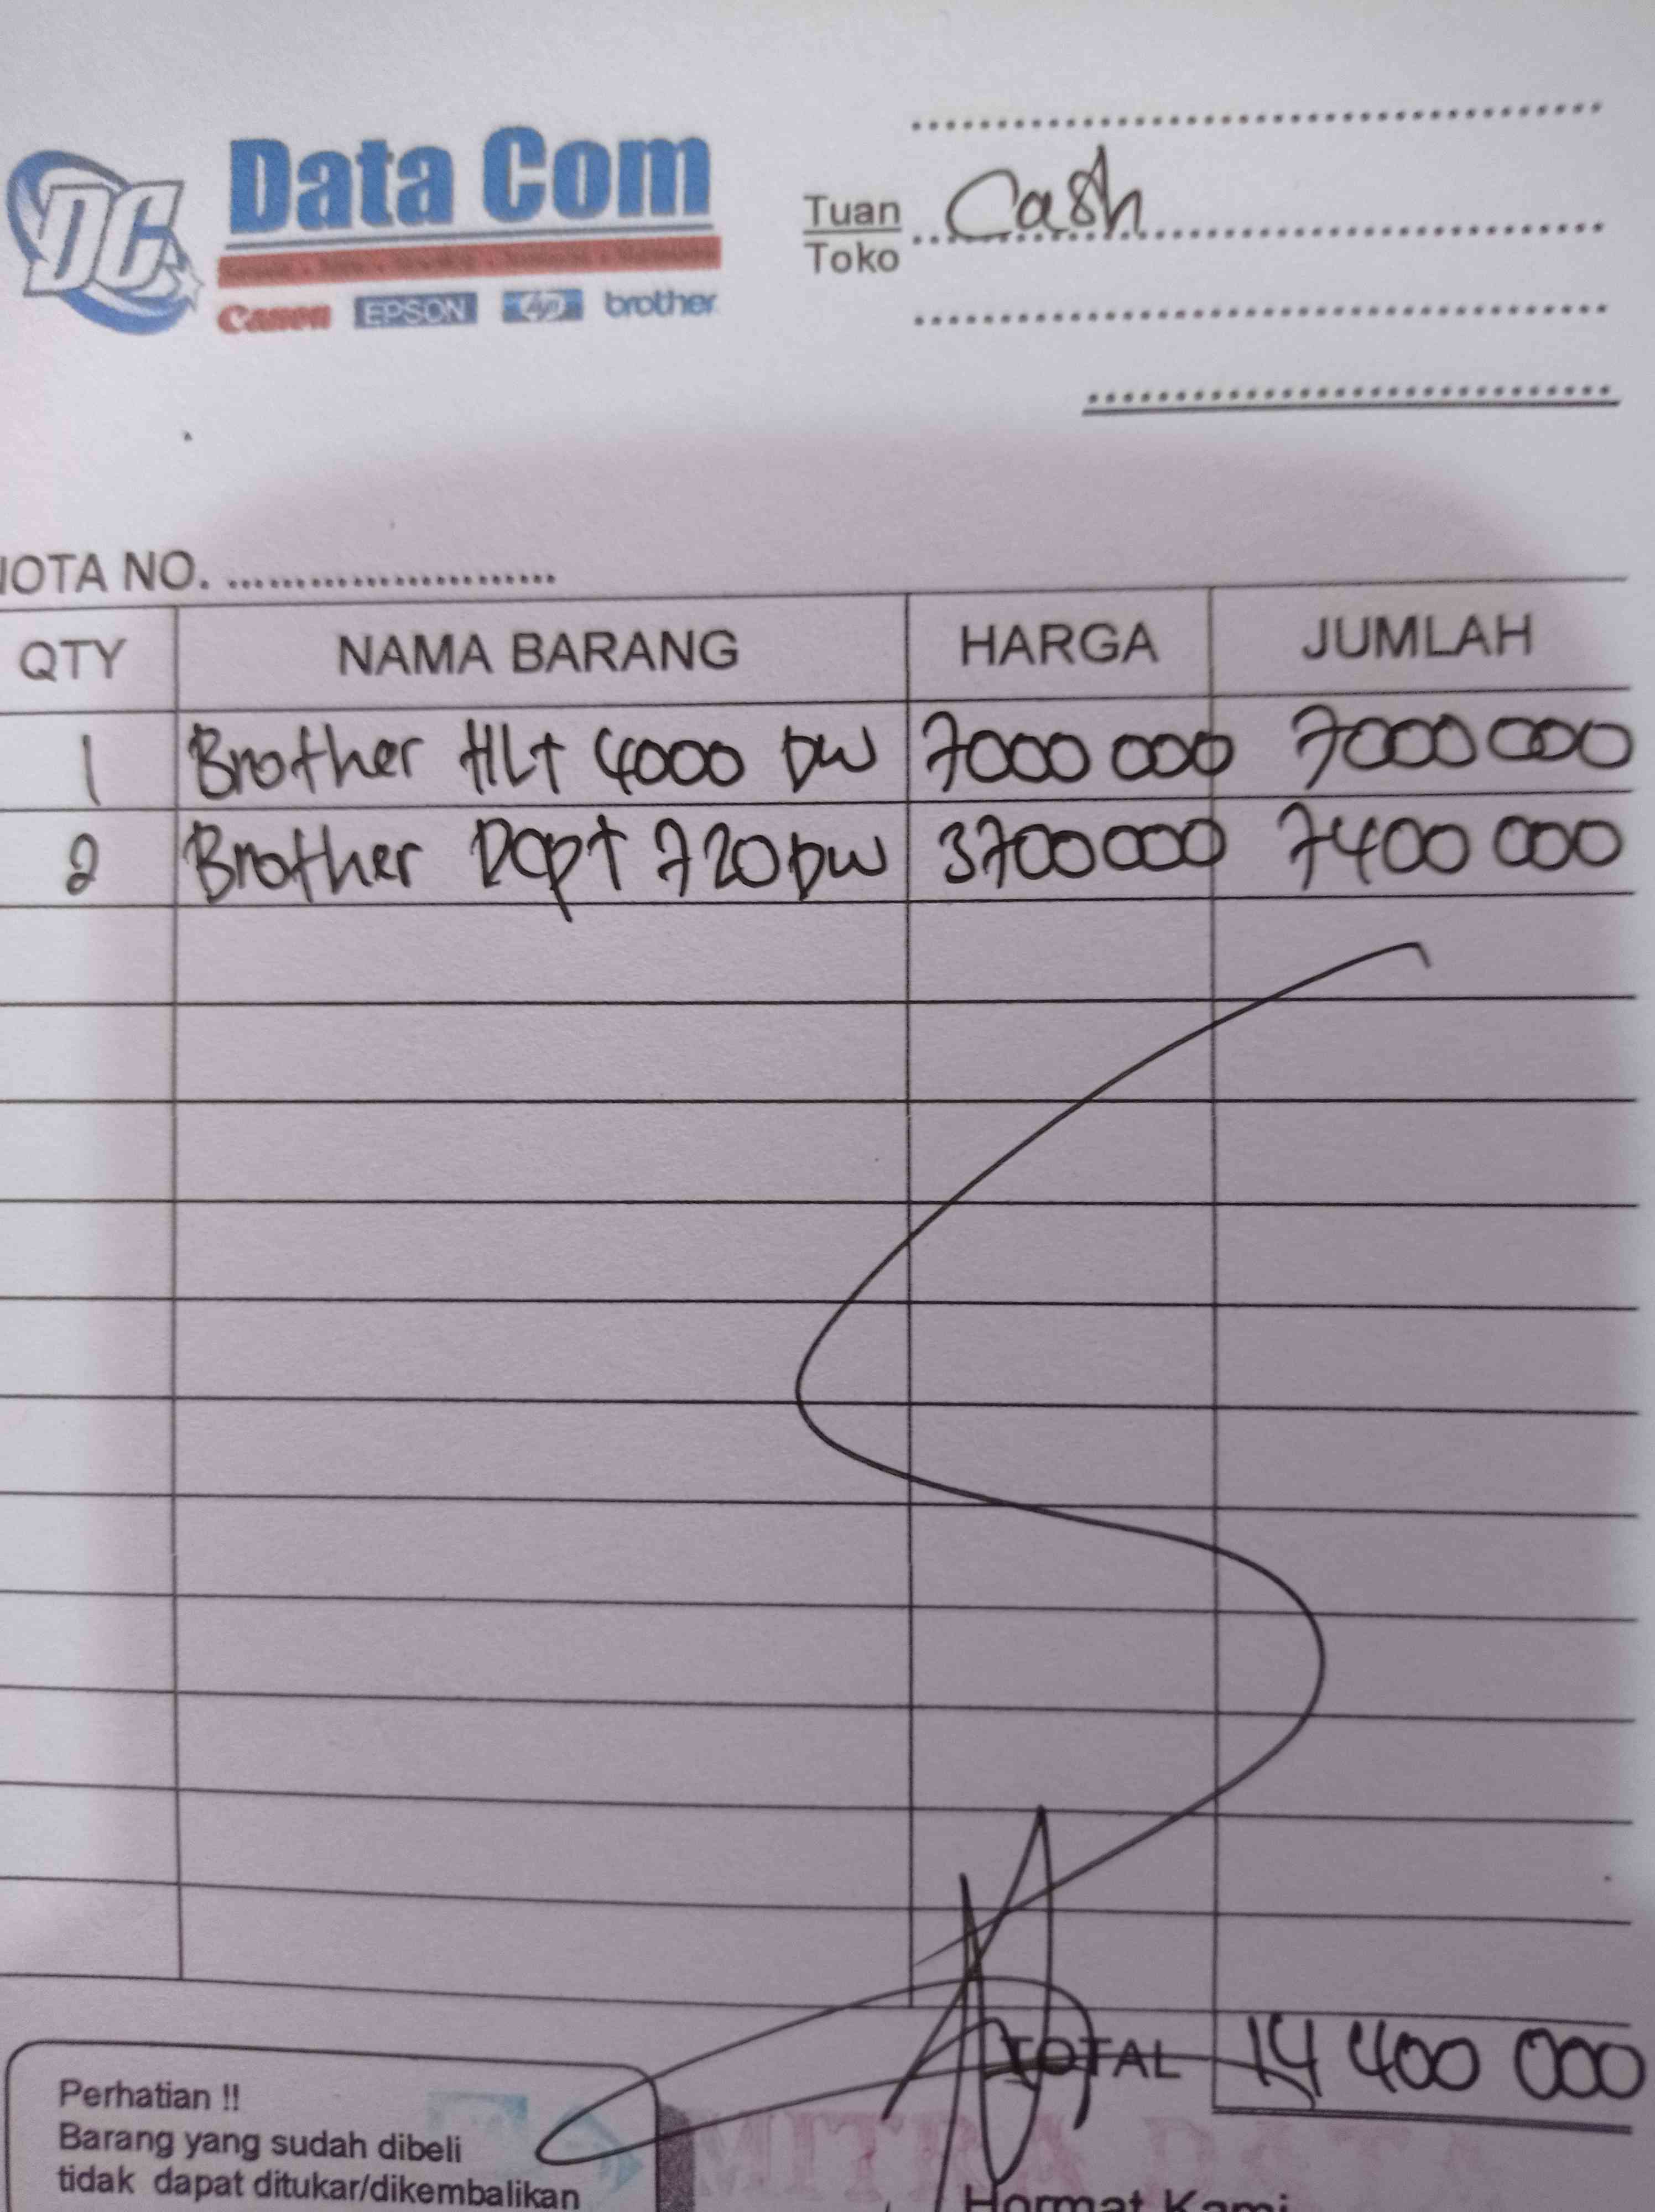 DC
Data Com
Canon EPSON hp brother
Tuan Cash
Toko
NOTA NO. ........................
QTY NAMA BARANG HARGA JUMLAH
1 Brother HLT 4000 DW 7000 000 7000 000
2 Brother Dcpt 720 DW 3700 000 7400 000
TOTAL 14 400 000
Perhatian !!
Barang yang sudah dibeli
tidak dapat ditukar/dikembalikan
Hormat Kami